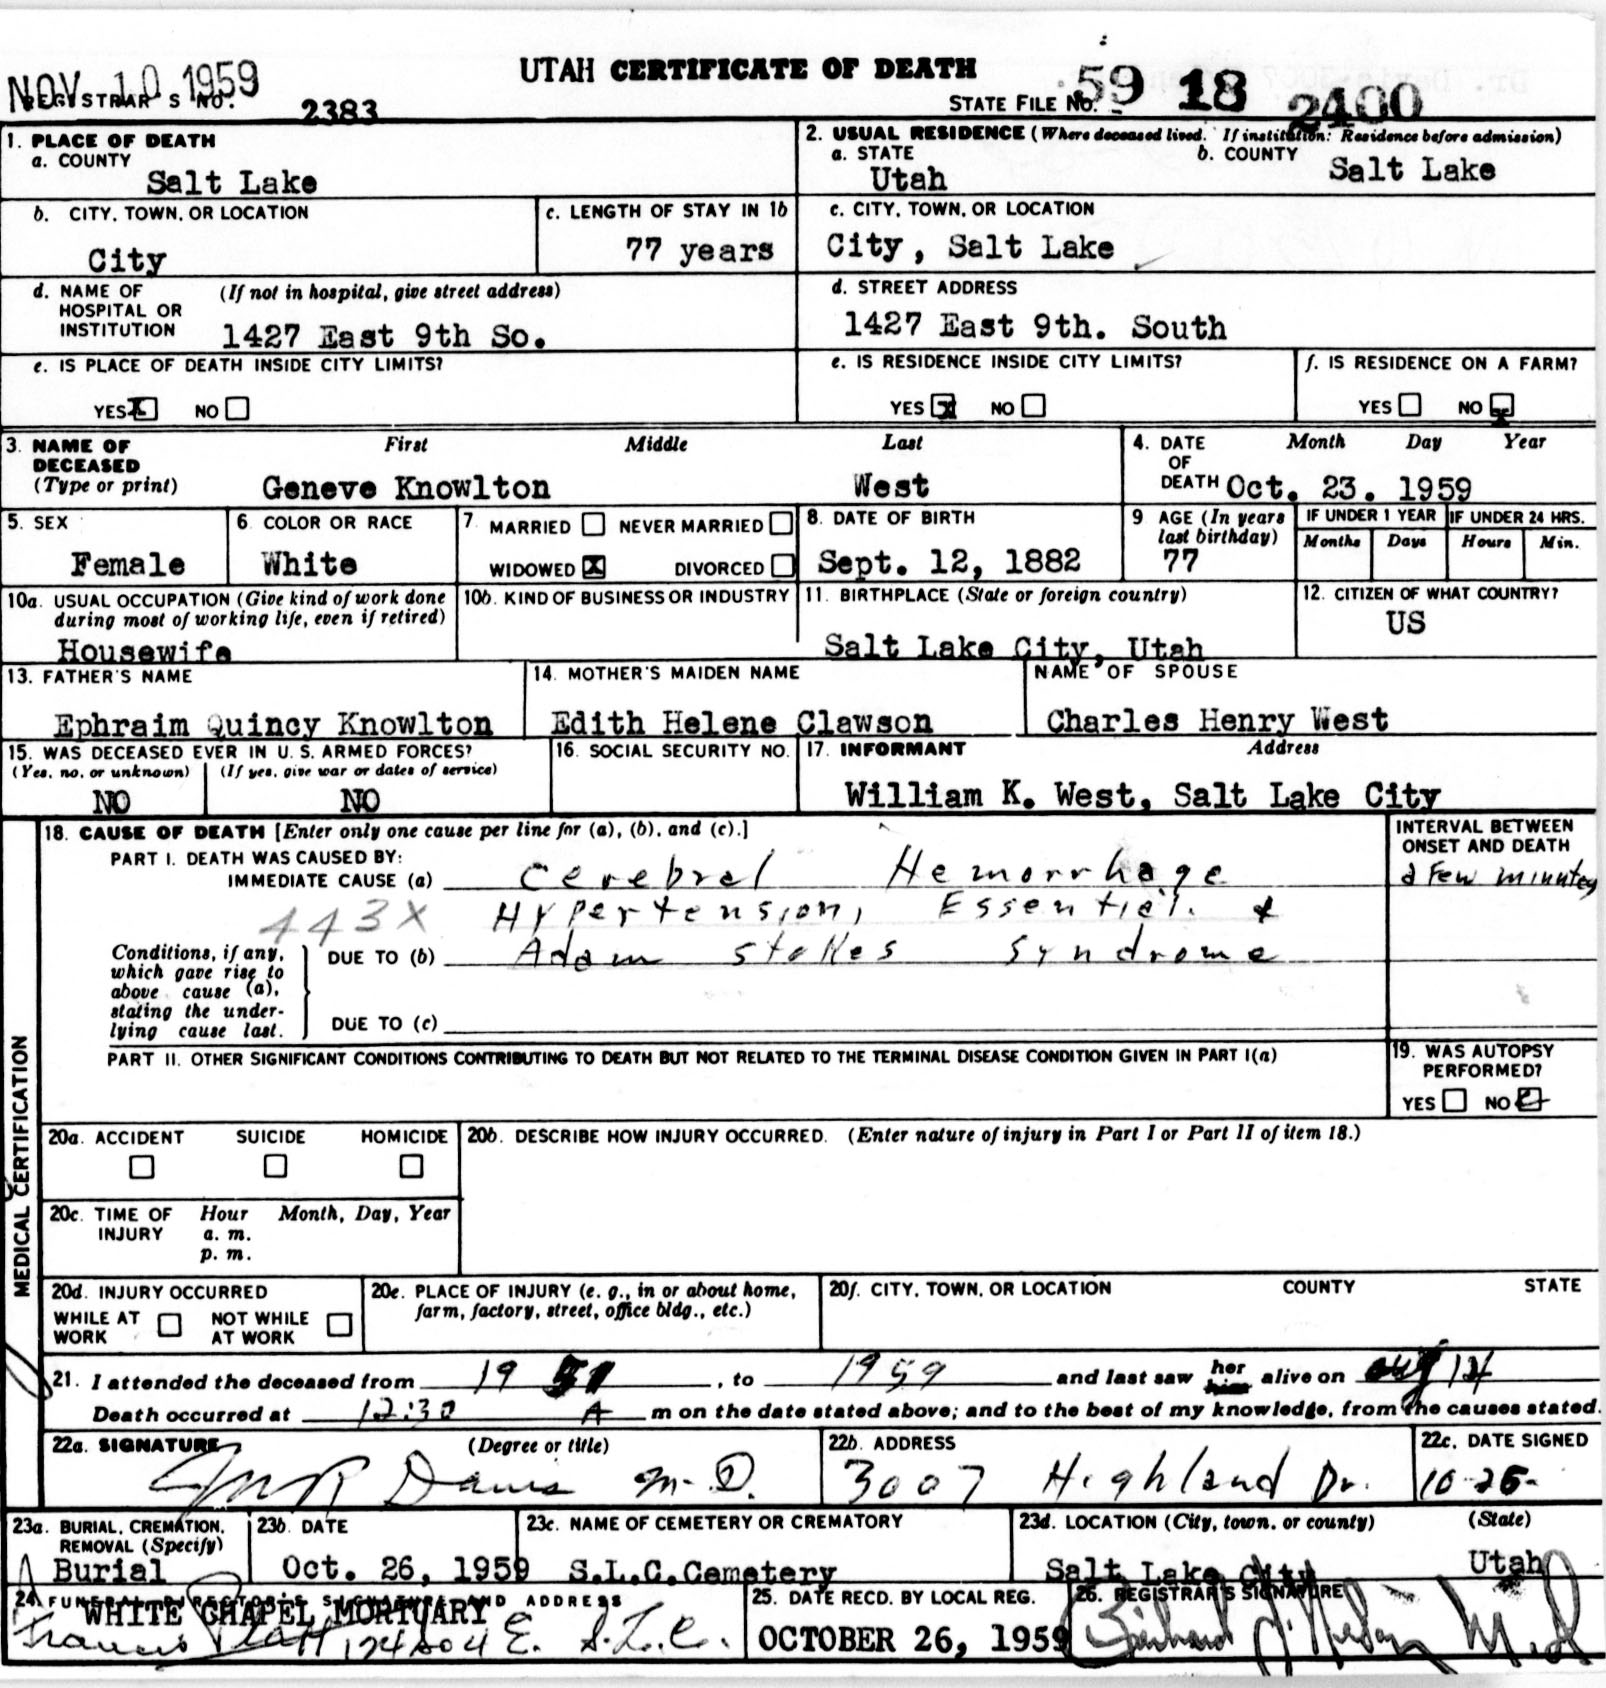 NOV 10 1959
UTAH CERTIFICATE OF DEATH
REGISTRAR'S NO. 2383
STATE FILE NO. 59 18 2400
1. PLACE OF DEATH
a. COUNTY
Salt Lake
2. USUAL RESIDENCE (Where deceased lived. If institution: Residence before admission)
a. STATE
Utah
b. COUNTY
Salt Lake
b. CITY, TOWN, OR LOCATION
City
c. LENGTH OF STAY IN 1b
77 years
c. CITY, TOWN, OR LOCATION
City, Salt Lake
d. NAME OF HOSPITAL OR INSTITUTION
(If not in hospital, give street address)
1427 East 9th So.
d. STREET ADDRESS
1427 East 9th. South
e. IS PLACE OF DEATH INSIDE CITY LIMITS?
YES X NO
e. IS RESIDENCE INSIDE CITY LIMITS?
YES X NO
f. IS RESIDENCE ON A FARM?
YES NO X
3. NAME OF DECEASED
(Type or print)
First Middle Last
Geneve Knowlton West
4. DATE OF DEATH
Month Day Year
Oct. 23. 1959
5. SEX
Female
6. COLOR OR RACE
White
7. MARRIED NEVER MARRIED
WIDOWED X DIVORCED
8. DATE OF BIRTH
Sept. 12, 1882
9 AGE (In years last birthday)
77
IF UNDER 1 YEAR
Months Days
IF UNDER 24 HRS.
Hours Min.
10a. USUAL OCCUPATION (Give kind of work done during most of working life, even if retired)
Housewife
10b. KIND OF BUSINESS OR INDUSTRY
11. BIRTHPLACE (State or foreign country)
Salt Lake City, Utah
12. CITIZEN OF WHAT COUNTRY?
US
13. FATHER'S NAME
Ephraim Quincy Knowlton
14. MOTHER'S MAIDEN NAME
Edith Helene Clawson
NAME OF SPOUSE
Charles Henry West
15. WAS DECEASED EVER IN U. S. ARMED FORCES?
(Yes, no, or unknown) (If yes, give war or dates of service)
NO NO
16. SOCIAL SECURITY NO.
17. INFORMANT Address
William K. West, Salt Lake City
MEDICAL CERTIFICATION
18. CAUSE OF DEATH [Enter only one cause per line for (a), (b), and (c).]
INTERVAL BETWEEN ONSET AND DEATH
PART I. DEATH WAS CAUSED BY:
IMMEDIATE CAUSE (a) Cerebral Hemorrhage
a few minutes
443X
Hypertension, Essential. &
Conditions, if any, which gave rise to above cause (a), stating the underlying cause last.
DUE TO (b) Adam Stokes Syndrome
DUE TO (c)
PART II. OTHER SIGNIFICANT CONDITIONS CONTRIBUTING TO DEATH BUT NOT RELATED TO THE TERMINAL DISEASE CONDITION GIVEN IN PART I(a)
19. WAS AUTOPSY PERFORMED?
YES NO
20a. ACCIDENT SUICIDE HOMICIDE
20b. DESCRIBE HOW INJURY OCCURRED. (Enter nature of injury in Part I or Part II of item 18.)
20c. TIME OF INJURY
Hour Month, Day, Year
a. m.
p. m.
20d. INJURY OCCURRED
WHILE AT WORK NOT WHILE AT WORK
20e. PLACE OF INJURY (e. g., in or about home, farm, factory, street, office bldg., etc.)
20f. CITY, TOWN, OR LOCATION COUNTY STATE
21. I attended the deceased from 19 51, to 1959 and last saw her him alive on Aug 14
Death occurred at 12:30 A m on the date stated above; and to the best of my knowledge, from the causes stated.
22a. SIGNATURE (Degree or title)
Davis M.D.
22b. ADDRESS
3007 Highland Dr.
22c. DATE SIGNED
10-25-
23a. BURIAL, CREMATION, REMOVAL (Specify)
Burial
23b. DATE
Oct. 26, 1959
23c. NAME OF CEMETERY OR CREMATORY
S.L.C.Cemetery
23d. LOCATION (City, town, or county) (State)
Salt Lake City Utah
24. FUNERAL DIRECTOR'S SIGNATURE AND ADDRESS
WHITE CHAPEL MORTUARY
Francis Platt E. S.L.C.
25. DATE RECD. BY LOCAL REG.
OCTOBER 26, 1959
26. REGISTRAR'S SIGNATURE
M.D.